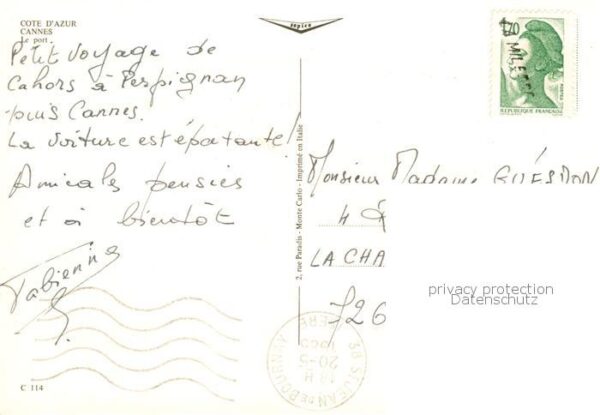 COTE D'AZUR
CANNES
Le port
Petit voyage de
Cahors à Perpignan
puis Cannes.
La voiture est épatante!
Amicales pensées
et à bientôt
Fabienne
C 114
épica
2, rue Paradis - Monte Carlo - Imprimé en Italie
1,70
REPUBLIQUE FRANÇAISE
Monsieur Madame GUESMON
4
LA CHA
726
privacy protection
Datenschutz
38 ST JEAN DE BOURNAY
18 H
20-5
ISERE